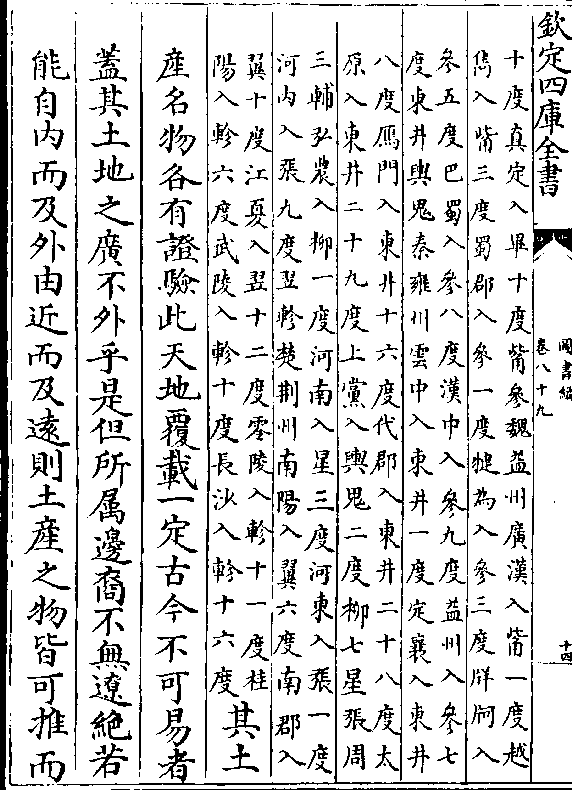 欽定四庫全書
圖書編
卷八十九
十四
十度真定入畢十度觜參魏益州廣漢入觜一度越
雋入觜三度蜀郡入參一度犍為入參三度牂牁入
參五度巴蜀入參八度漢中入參九度益州入參七
度東井輿鬼秦雍州雲中入東井一度定襄入東井
八度鴈門入東井十六度代郡入東井二十八度太
原入東井二十九度上黨入輿鬼二度柳七星張周
三輔弘農入柳一度河南入星三度河東入張一度
河内入張九度翌軫楚荆州南陽入翼六度南郡入
翼十度江夏入翌十二度零陵入軫十一度桂
陽入軫六度武陵入軫十度長沙入軫十六度
其土
産名物各有證驗此天地覆載一定古今不可易者
蓋其土地之廣不外乎是但所属邊裔不無遼絶若
能自内而及外由近而及遠則土産之物皆可推而